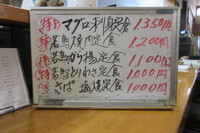 特 マグロ刺身定食 1350円
特 若鳥焼肉定食 1200円
特 若鳥から揚定食 1100円
若鳥とりわさ定食 1000円
さば塩焼定食 1000円